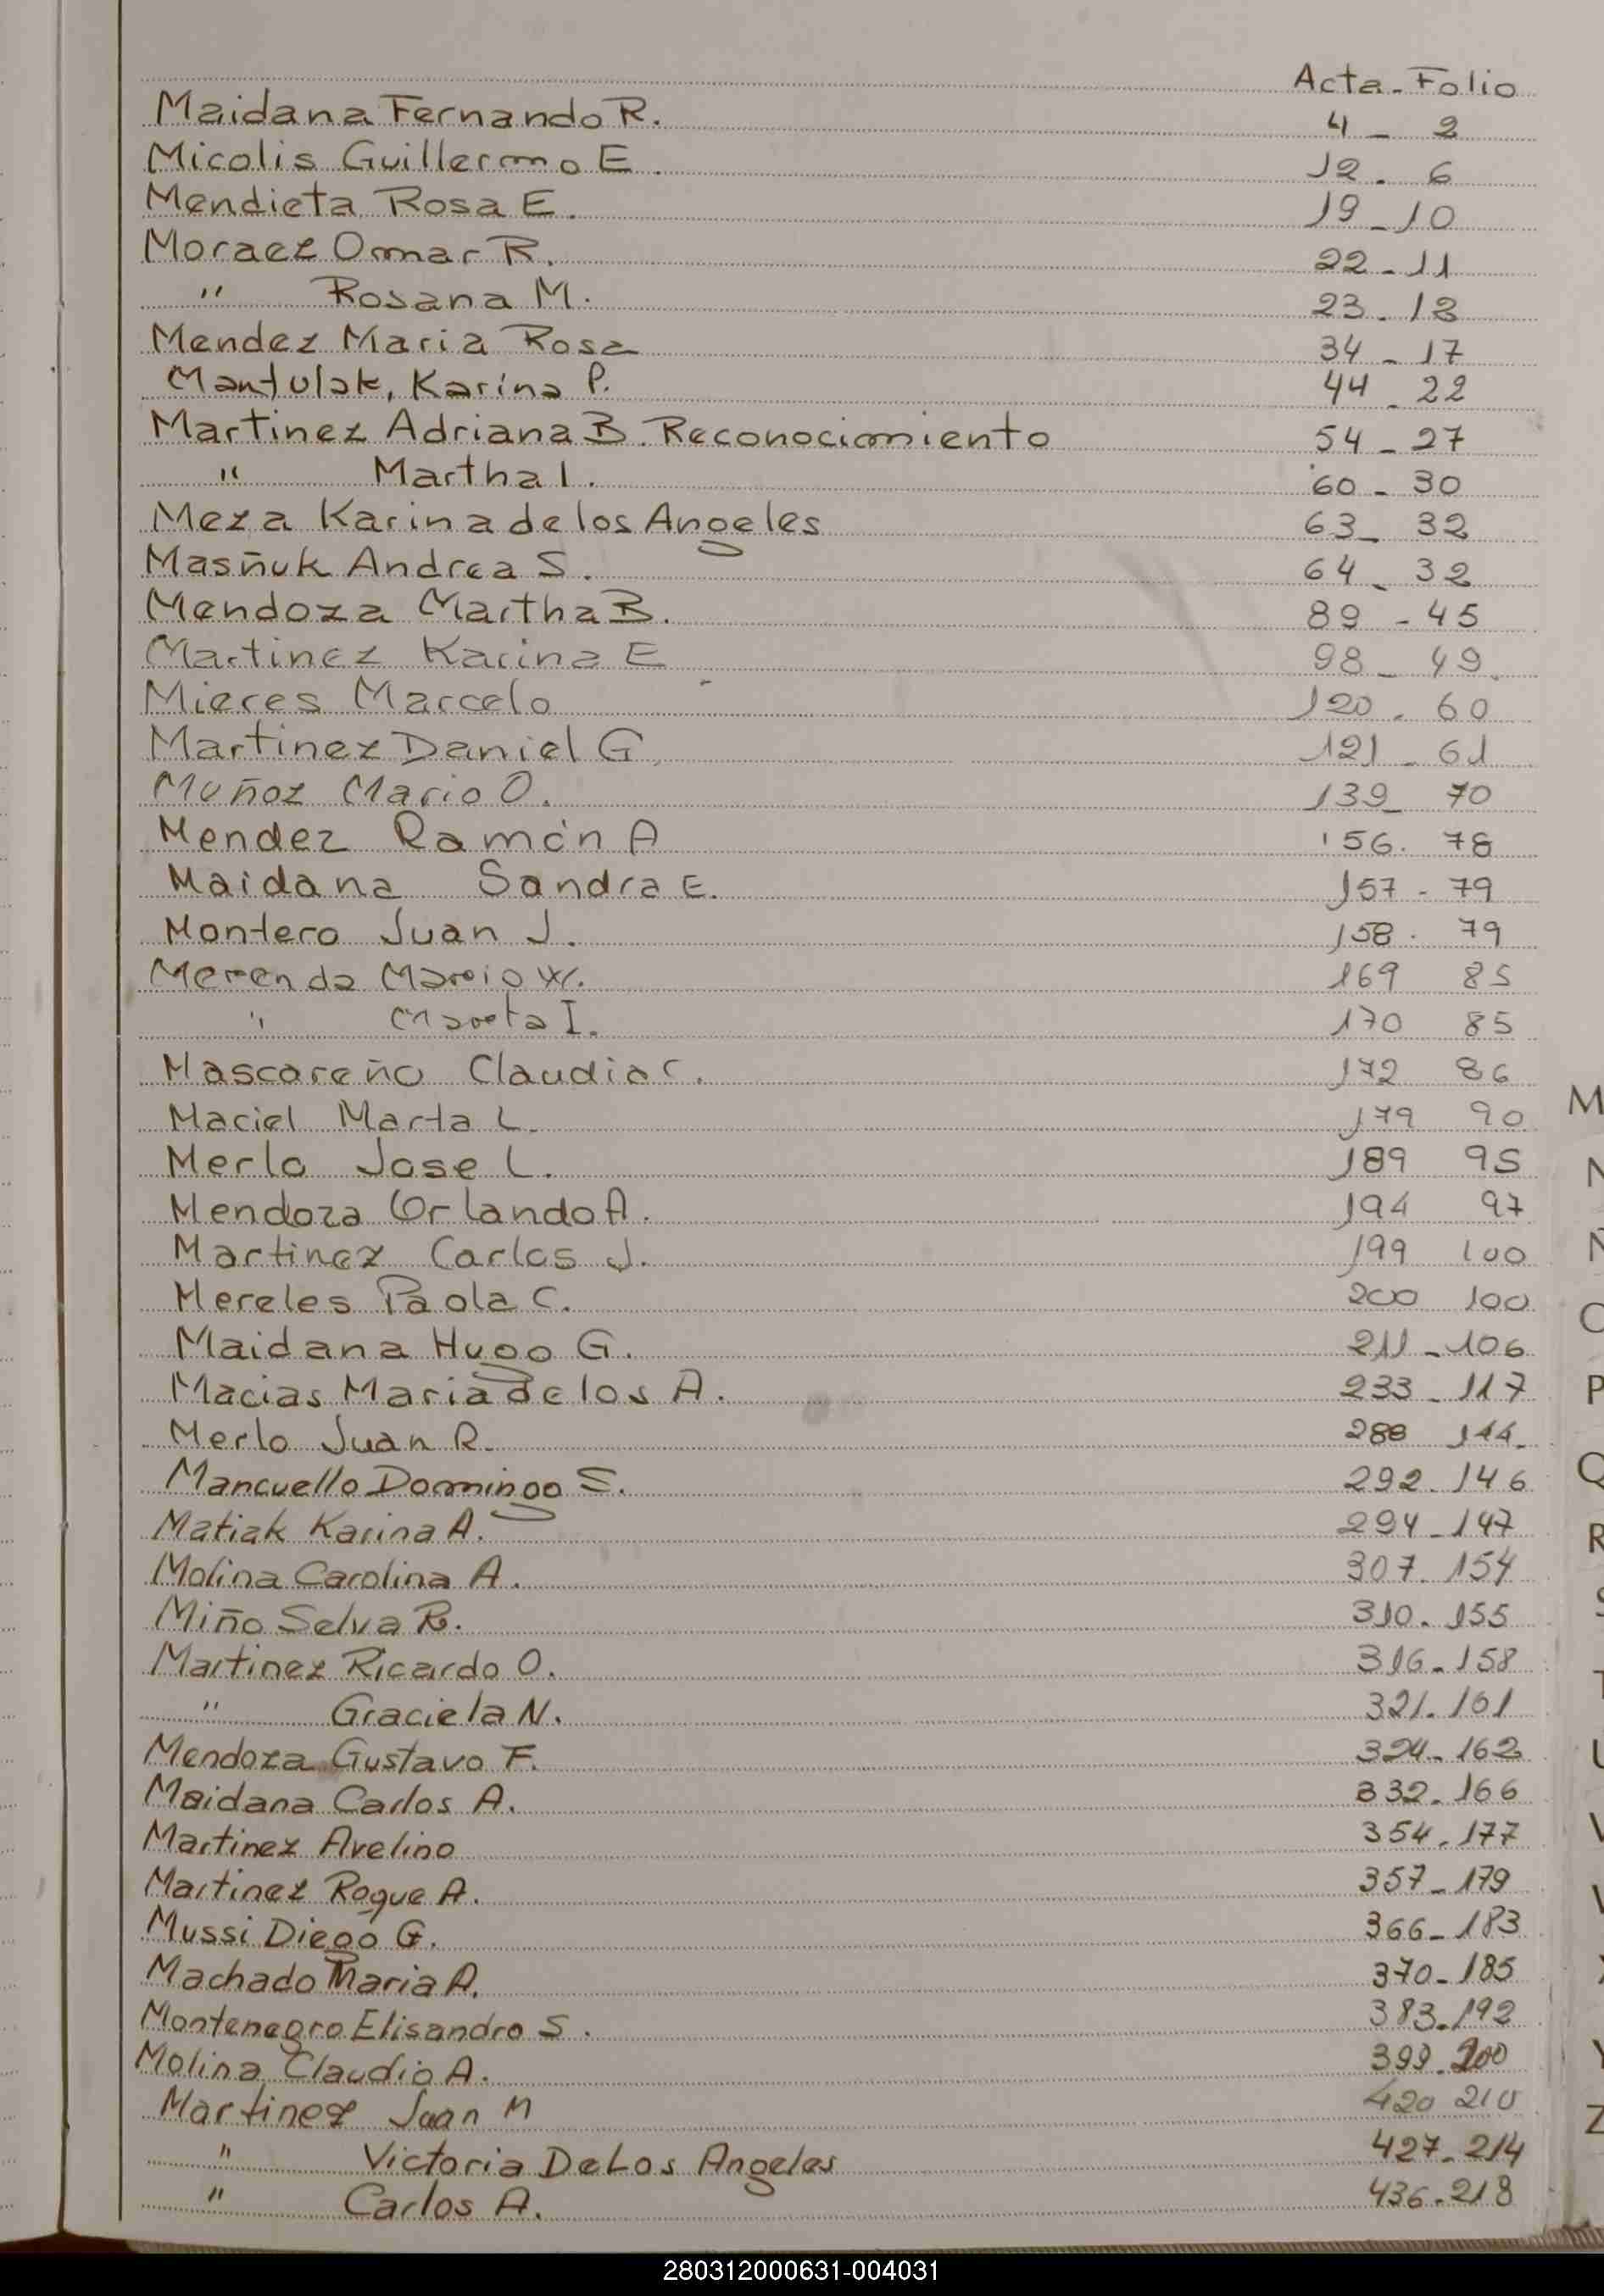 Acta - Folio
Maidana Fernando R. 4 - 2
Micolis Guillermo E. 12 - 6
Mendieta Rosa E. 19 - 10
Moraez Omar R. 22 - 11
" Rosana M. 23 - 12
Mendez Maria Rosa 34 - 17
Mantulak, Karina P. 44 - 22
Martinez Adriana B. Reconocimiento 54 - 27
" Martha I. 60 - 30
Meza Karina de los Angeles 63 - 32
Masñuk Andrea S. 64 - 32
Mendoza Martha B. 89 - 45
Martinez Karina E 98 - 49
Mieres Marcelo 120 - 60
Martinez Daniel G. 121 - 61
Muñoz Mario O. 139 - 70
Mendez Ramón A 156 - 78
Maidana Sandra E. 157 - 79
Montero Juan J. 158 - 79
Merenda Mario W. 169 85
" Marta I. 170 85
Mascareño Claudia C. 172 86
Maciel Marta L. 179 90
Merlo Jose L. 189 95
Mendoza Orlando A. 194 97
Martinez Carlos J. 199 100
Mereles Paola C. 200 100
Maidana Hugo G. 211 - 106
Macias Maria de los A. 233 - 117
Merlo Juan R. 288 144
Mancuello Domingo S. 292 - 146
Matiak Karina A. 294 - 147
Molina Carolina A. 307 - 154
Miño Selva R. 310 - 155
Martinez Ricardo O. 316 - 158
" Graciela N. 321 - 161
Mendoza Gustavo F. 324 - 162
Maidana Carlos A. 332 - 166
Martinez Avelino 354 - 177
Martinez Roque A. 357 - 179
Mussi Diego G. 366 - 183
Machado Maria A. 370 - 185
Montenegro Elisandro S. 383 - 192
Molina Claudio A. 399 - 200
Martinez Juan M 420 210
" Victoria De Los Angeles 427 - 214
" Carlos A. 436 - 218
M
N
Ñ
O
P
Q
R
S
T
U
V
Y
Z
280312000631-004031